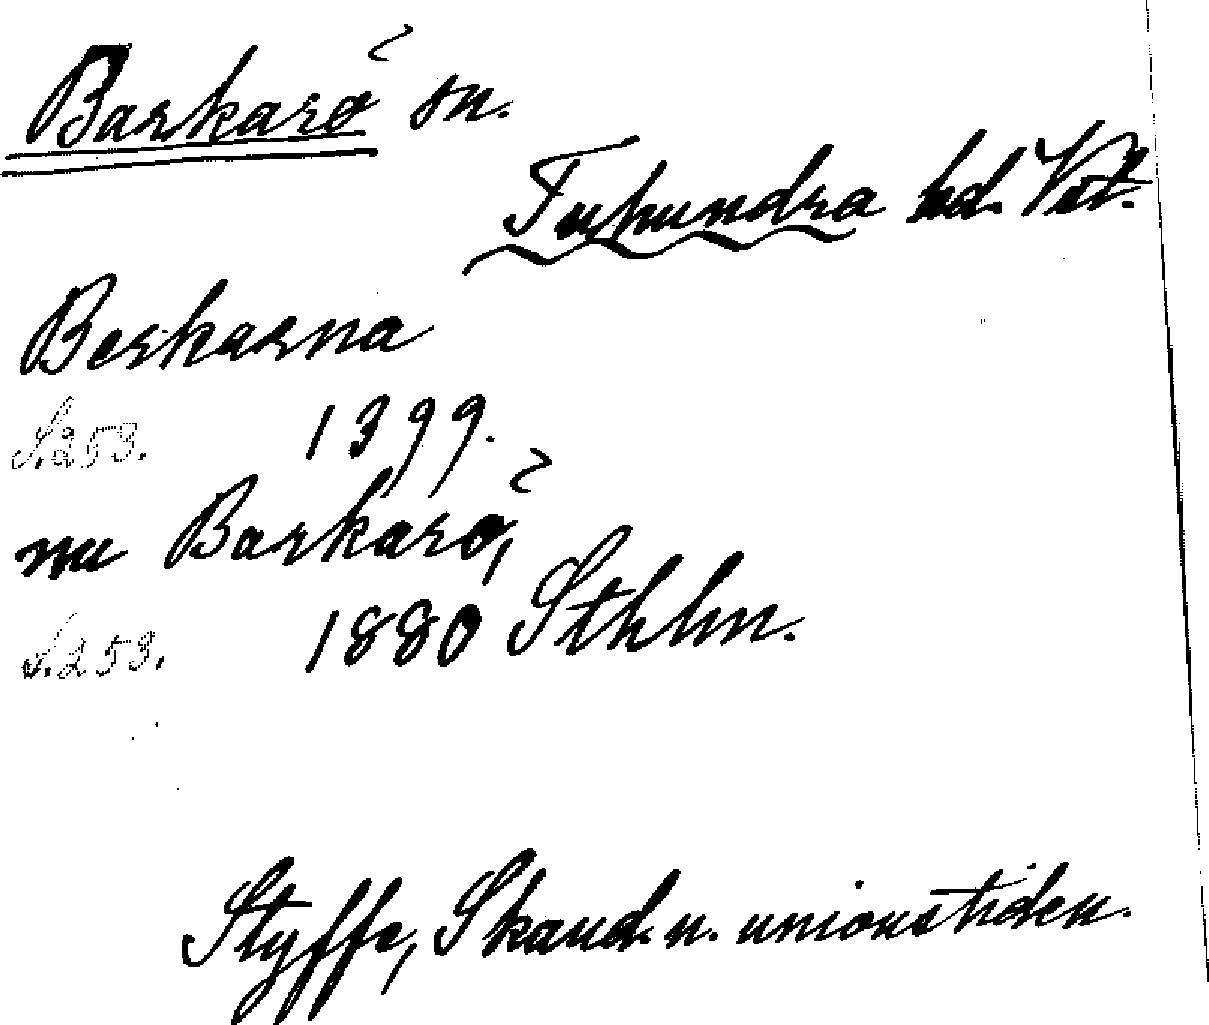 Barkarö sn.
Tuhundra hd. Vstl.
Berkarna
S.253. 1399.
nu Barkarö,
S.253. 1880 Sthlm.
Styffe, Skand. u. unionstiden.